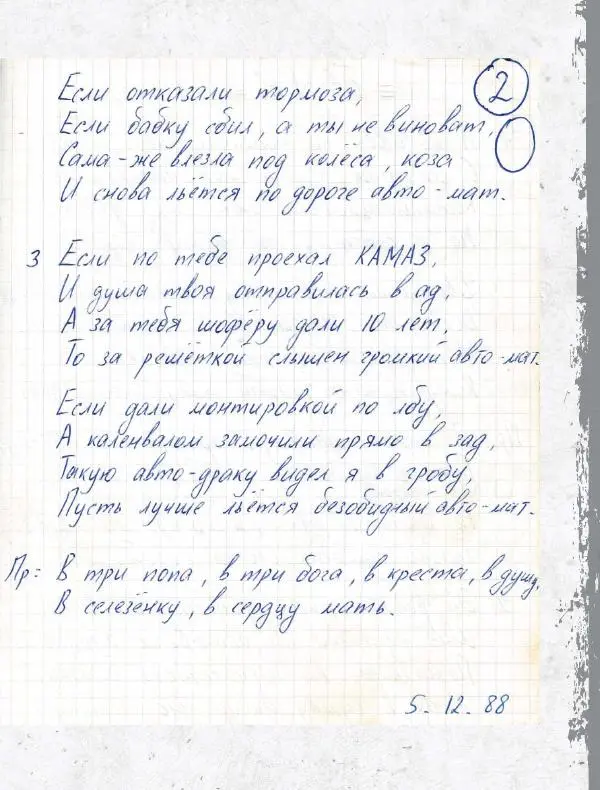 2
Если отказали тормоза,
Если бабку сбил, а ты не виноват,
Сама-же влезла под колёса, коза
И снова льётся по дороге авто-мат.
3 Если по тебе проехал КАМАЗ,
И душа твоя отправилась в ад,
А за тебя шофёру дали 10 лет,
То за решёткой слышен громкий авто-мат.
Если дали монтировкой по лбу,
А каленвалом замочили прямо в зад,
Такую авто-драку видел я в гробу,
Пусть лучше льётся безобидный авто-мат.
Пр: В три попа, в три бога, в креста, в душу,
В селезёнку, в сердцу мать.
5. 12. 88